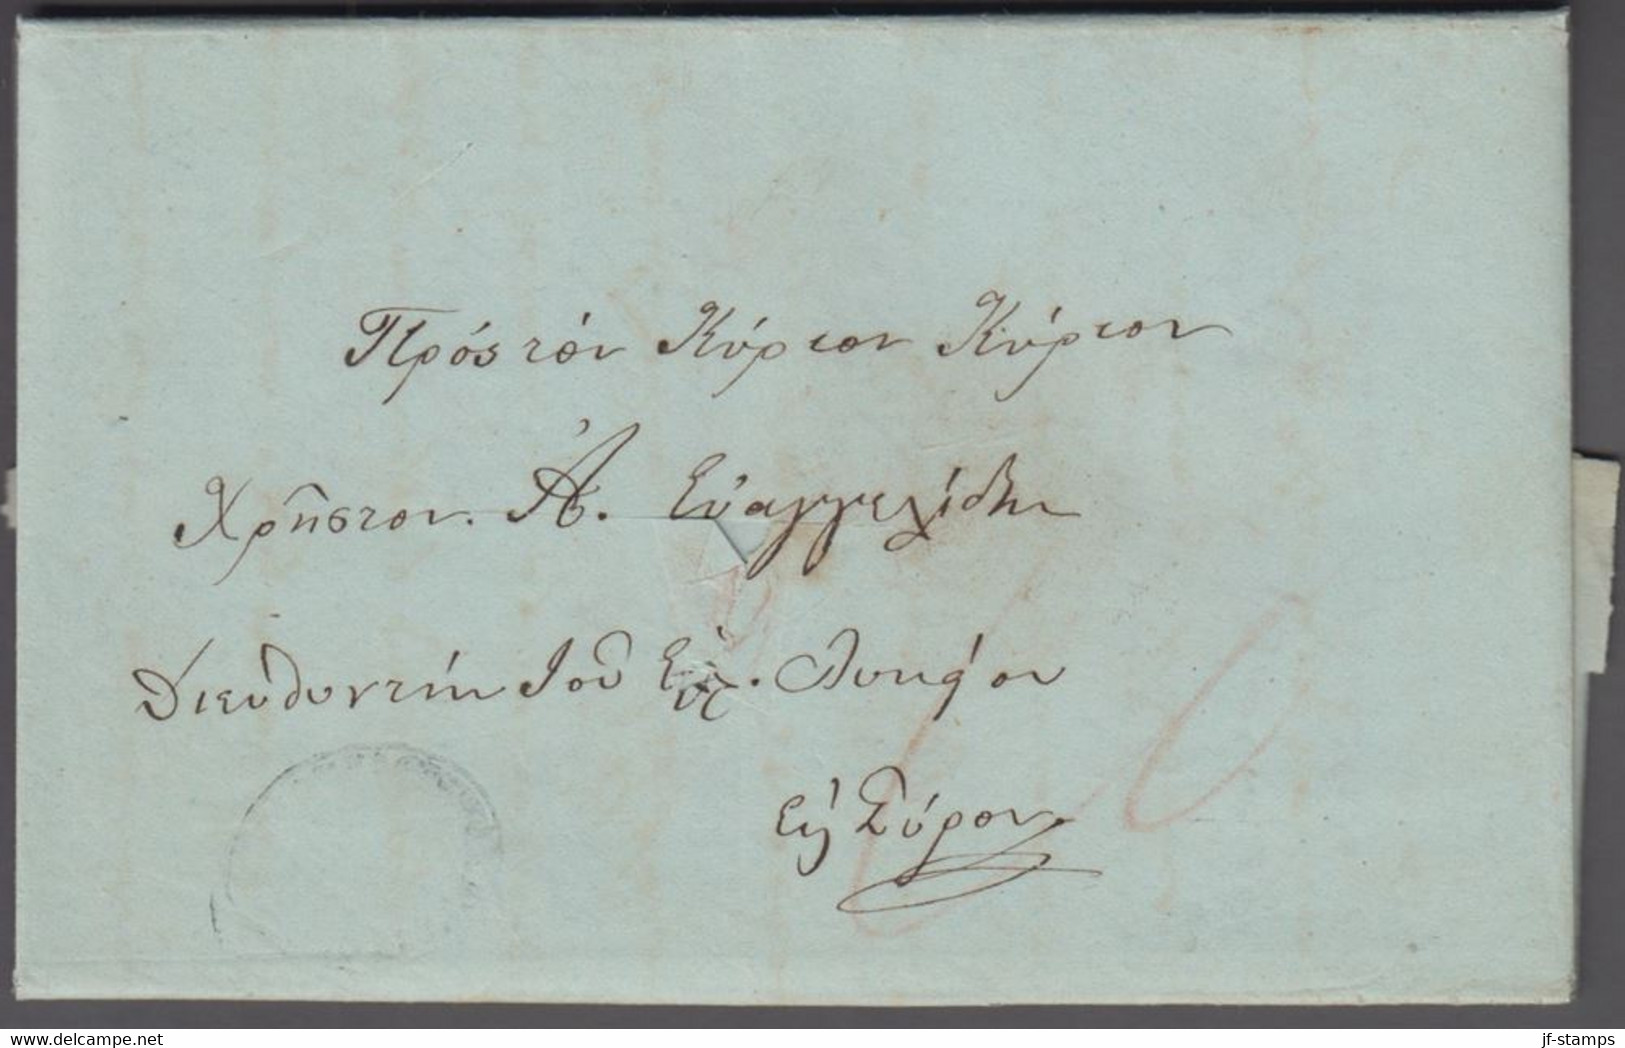 Πρὸς τὸν Κύριον Κύριον
Χρῆστον. Ἀ. Εὐαγγελίδην
Διευθυντὴν τοῦ Ἑλ. Λυκείου
εἰς Σύρον.
www.delcampe.net
jf-stamps